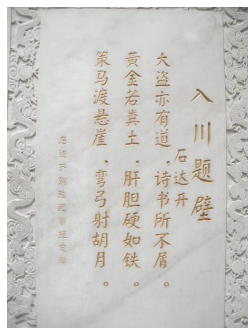 入川题壁
石达开
大盗亦有道,诗书所不屑。
黄金若粪土,肝胆硬如铁。
策马渡悬崖,弯弓射胡月。